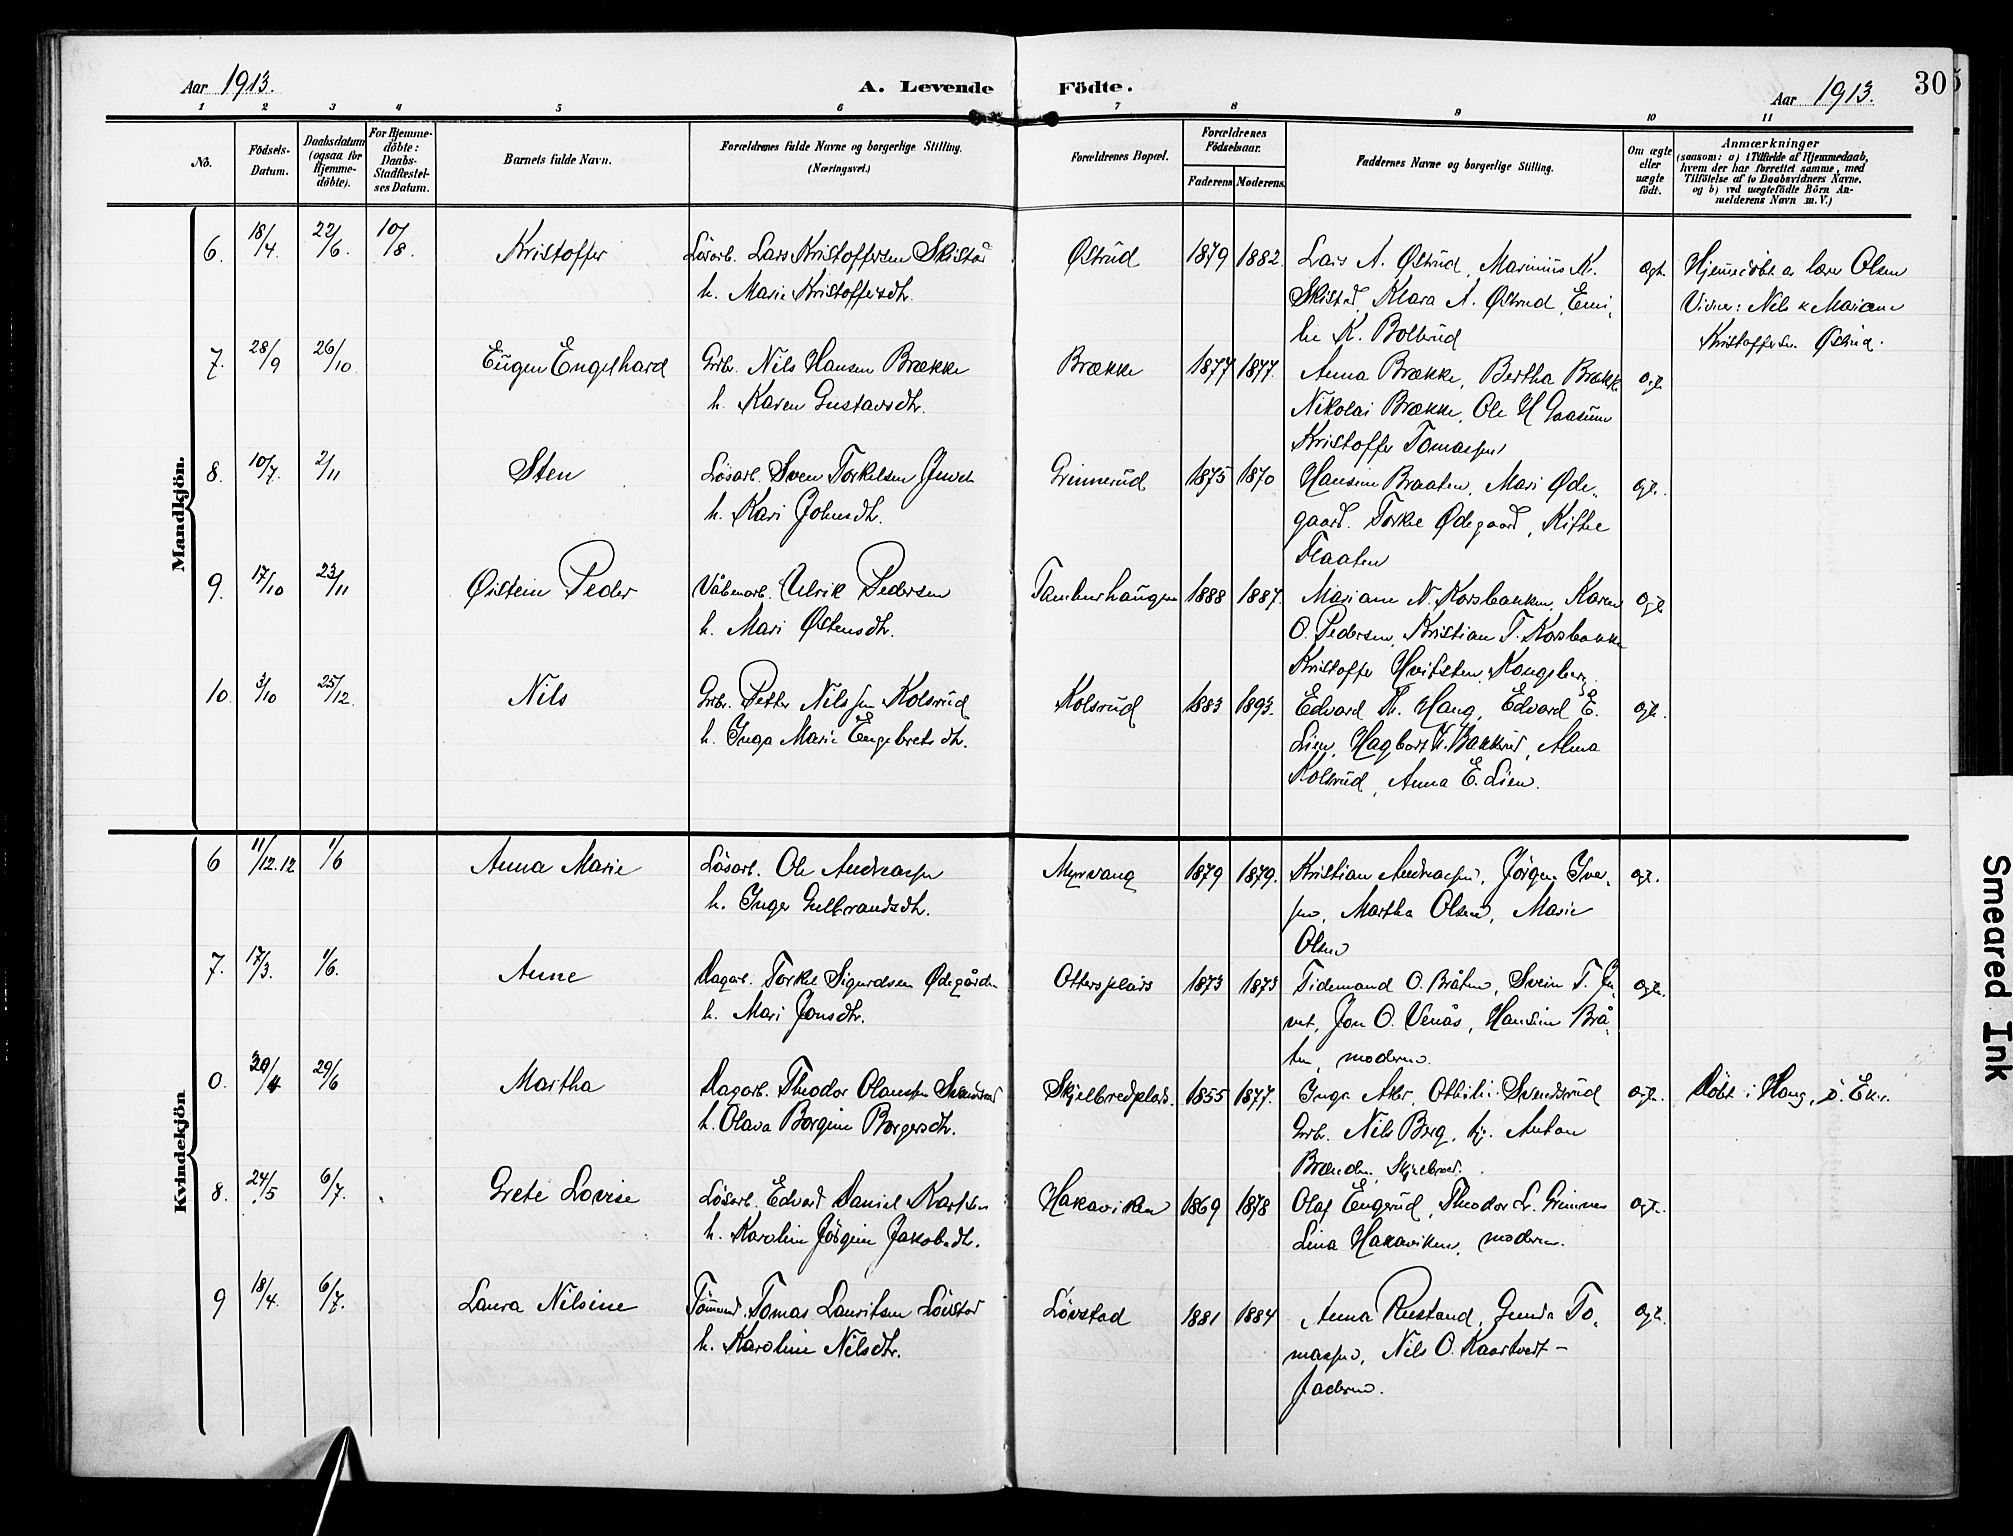 Aar 1913.
A. Levende Födte.
Aar 1913.
30
1 2 3 4 5 6 7 8 9 10 11
No.
Födsels-Datum.
Daabsdatum (ogsaa for Hjemme-döbte).
For Hjemme-döbte: Daabs-Stadfæstel-ses Datum.
Barnets fulde Navn.
Forældrenes fulde Navne og borgerlige Stilling. (Næringsvei.)
Forældrenes Bopæl.
Forældrenes Födselsaar.
Faderens Moderens
Faddernes Navne og borgerlige Stilling.
Om ægte eller uægte födt.
Anmærkninger
(saasom: a) i Tilfælde af Hjemmedaab,
hvem der har forrettet samme, med
Tilföielse af to Daabsvidners Navne,
og b) ved uægtefödte Börn An-
melderens Navn m. V.)
Mandkjön.
6. 18/4. 22/6. 10/8. Kristoffer Lösarb. Lars Kristoffersen Skistad Østrud 1879 1882. Lars A. Østrud, Marinius K. ægt. Hjemmedøbt av lærer Olsen
h. Marie Kristoffersdtr. Skistad, Klara A. Østrud, Emi- Vidner: Nils & Mariane
lie K. Bolbrud Kristoffersen Østrud.
7. 28/9 26/10. Eugen Engelhard Grbr. Nils Hansen Brække Brække 1877 1877. Anna Brække, Bertha Brække ægt.
h. Karen Gustavsdtr. Nikolai Brække, Ole H Gaasum
Kristoffer Tomassen
8. 10/7. 2/11 Sten Lösarb. Sven Torkelsen Grimerud 1875 1870 Hansine Braaten, Mari Øde- ægt.
h. Kari Johnsdtr. gaard. Torkel Ødegaard,
Flaaten
9. 17/10 23/11 Østein Peder Våbenarb. Ulrik Pedersen Tamburhaugen 1888 1887. Mariane N. Korsbakken, Karen ægt
h. Mari Østensdtr. O. Pedersen, Kristian T. Korsbakke
Kristoffer Hvitsten, Kongsberg.
10. 3/10 25/12. Nils Grbr. Petter Nilssen Kolsrud Kolsrud 1883 1893. Edvard Th. Haug, Edvard E. ægt.
h. Inga Marie Engebretsdtr. Lien, Hagbart K. Bakkerud, Alma
Kolsrud, Anna E. Lien.
Kvindekjön
6 11/12.12 1/6 Anna Marie Lösarb. Ole Andreassen Myrvang 1879 1879. Kristian Andreassen, Jörgen Iver- ægt.
h. Inger Gulbrandsdtr. sen, Martha Olsen, Marie
Olsen
7. 17/3. 1/6. Anne Dagarb. Torkel Sigurdsen Ødegården Ottersplads 1873 1873 Tidemand O. Bråten, Svein T. ægt.
h. Mari Jonsdtr. Jon O. Venås, Hansine Brå-
ten, moderen.
0. 20/4 29/6 Martha Dagarb. Theodor Olaussen Svendsrud Skjelbredplads. 1855 1877. Inga Aker, Othilie Svendsrud ægt. Döbt i Haug, Ö. Eker.
h. Olava Borgine Borgersdtr. Grbr. Nils Berg, Anton
Brænden, Skjelbred.
8. 24/5 6/7. Grete Lovise Lösarb. Edvard Daniel Karlsen Hakaviken 1869 1878 Olaf Engerud, Theodor L. Grimnes ægt.
h. Karoline Jörgine Jakobsdtr. Lina Hakaviken, moderen.
9 18/4. 6/7. Laura Nilsine Tömmerm. Tomas Lauritsen Lövstad Lövstad 1881 1884 Anna Rustand, Gunda To- ægt.
h. Karoline Nilsdtr. massen, Nils O. Kaartvedt –
faderen.
Smeared Ink